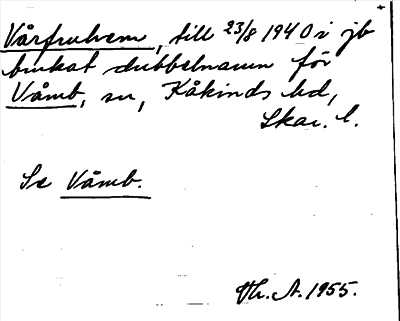 Vårfruhem, till 23/8 1940 i jb
brukat dubbelnamn för
Våmb, sn, Kåkinds hd,
Skar. l.
Se Våmb.
Vh. A. 1955.